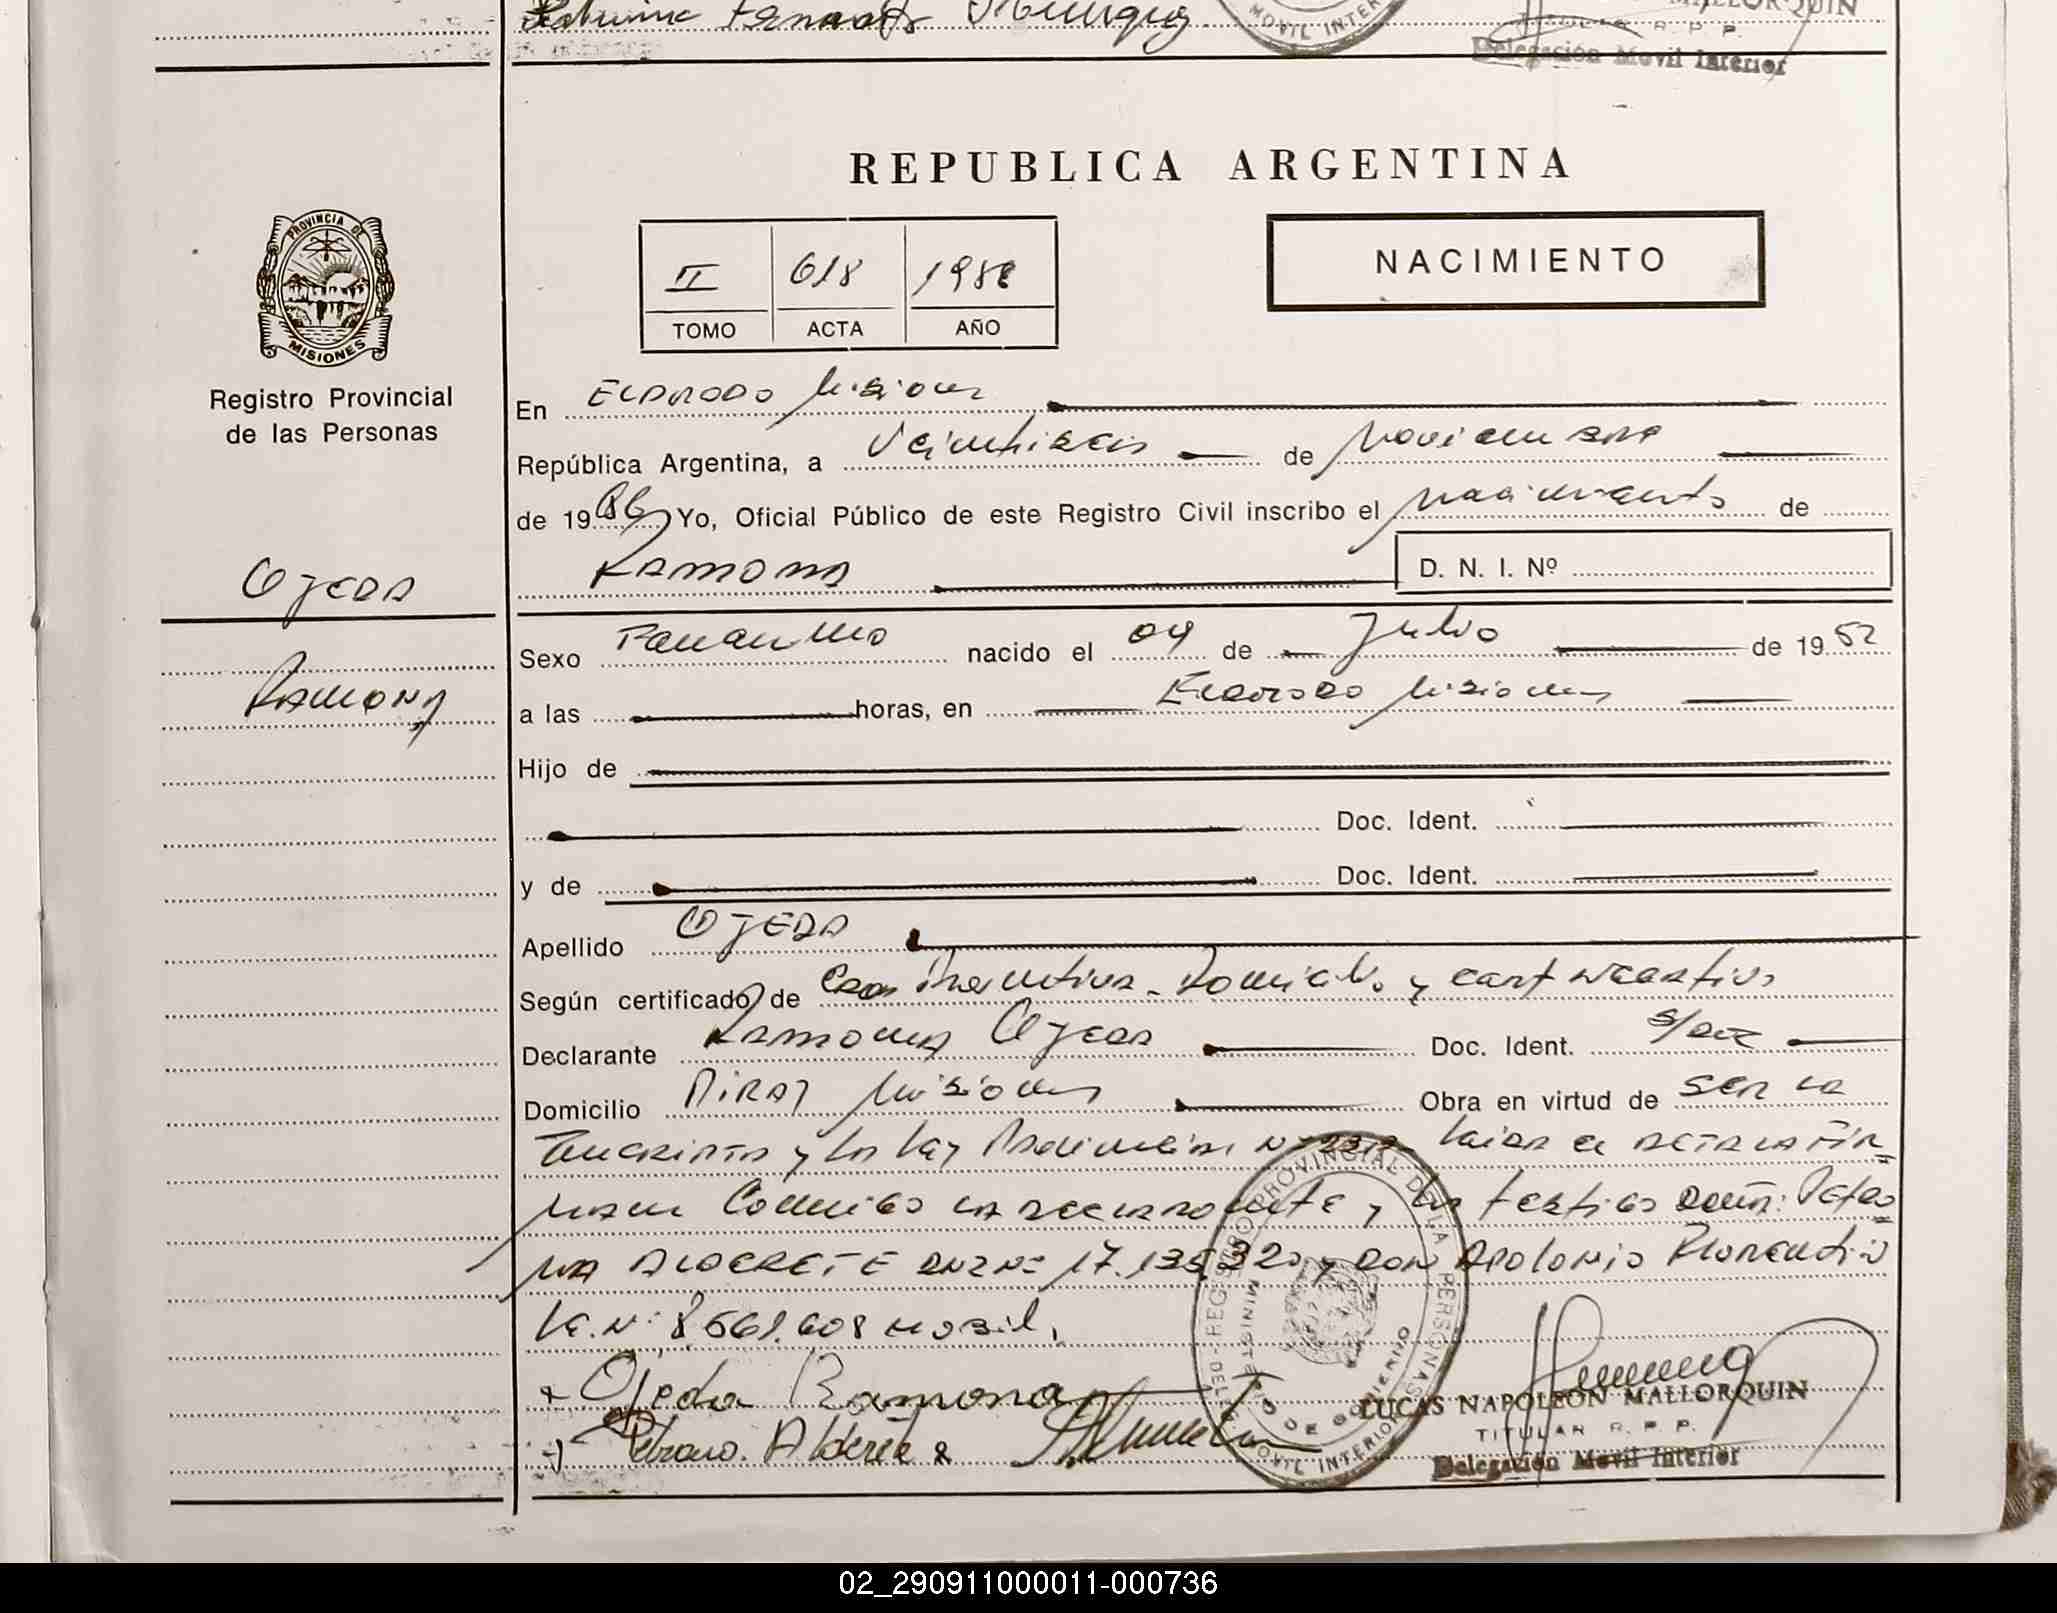 MOVIL INTER
TITULAR R. P. P.
Delegación Movil Interior
REPUBLICA ARGENTINA
PROVINCIA DE
MISIONES
Registro Provincial
de las Personas
II 618 1986
TOMO ACTA AÑO
NACIMIENTO
En Eldorado Misiones
República Argentina, a Veintiseis de Noviembre
de 1986 Yo, Oficial Público de este Registro Civil inscribo el nacimiento de
Ramona D. N. I. Nº
Ojeda
Ramona
Sexo Femenino nacido el 04 de Julio de 1952
a las horas, en Eldorado Misiones
Hijo de
Doc. Ident.
y de Doc. Ident.
Apellido OJEDA
Según certificado de y cert negativo
Declarante Ramona Ojeda Doc. Ident. s/doc
Domicilio Misiones Obra en virtud de ser la
inscripta y la ley Provincial Nº leida el acta la fir=
man conmigo la declarante y los testigos doña: Petro=
na ALDERETE DNI Nº 17.135.320 y don Apolonio Florentin
L.E. Nº 8.561.608
Ojeda Ramona
Petrona Alderete
REGISTRO PROVINCIAL DE LA PERSONAS
MINISTERIO DE GOBIERNO
MOVIL INTERIOR
LUCAS NAPOLEON MALLORQUIN
TITULAR R. P. P.
Delegación Movil Interior
02_290911000011-000736